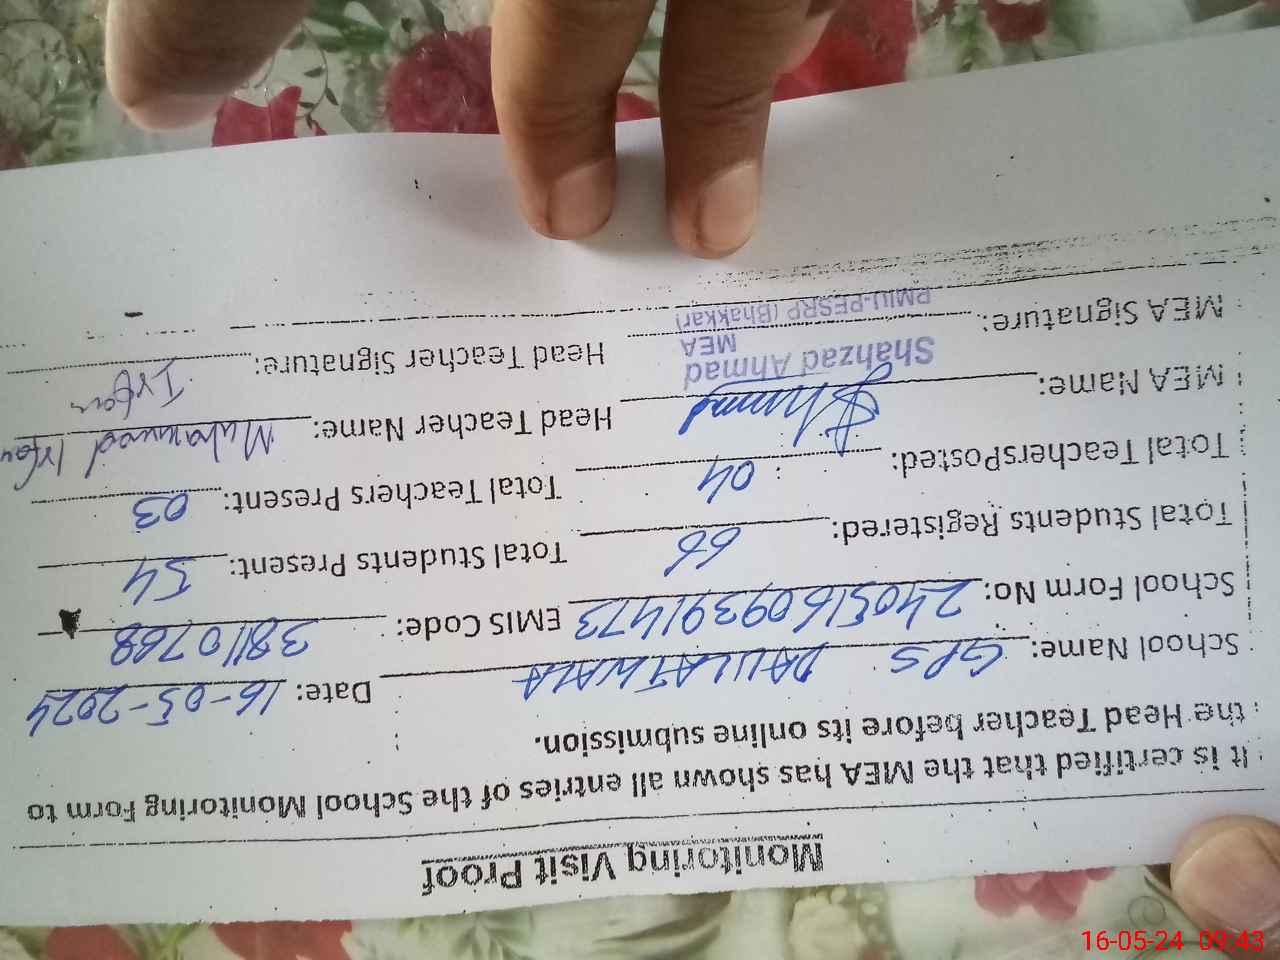 Monitoring Visit Proof
It is certified that the MEA has shown all entries of the School Monitoring Form to
the Head Teacher before its online submission.
School Name: GPS DAULATWALA Date: 16-05-2024
School Form No: 24051609391473 EMIS Code: 38110768
Total Students Registered: 66 Total Students Present: 54
Total TeachersPosted: 04 Total Teachers Present: 03
MEA Name: Head Teacher Name: Muhammad Irfan
Shahzad Ahmad
MEA
MEA Signature: Head Teacher Signature: Irfan
PMIU-PESRP (Bhakkar)
16-05-24 09:43